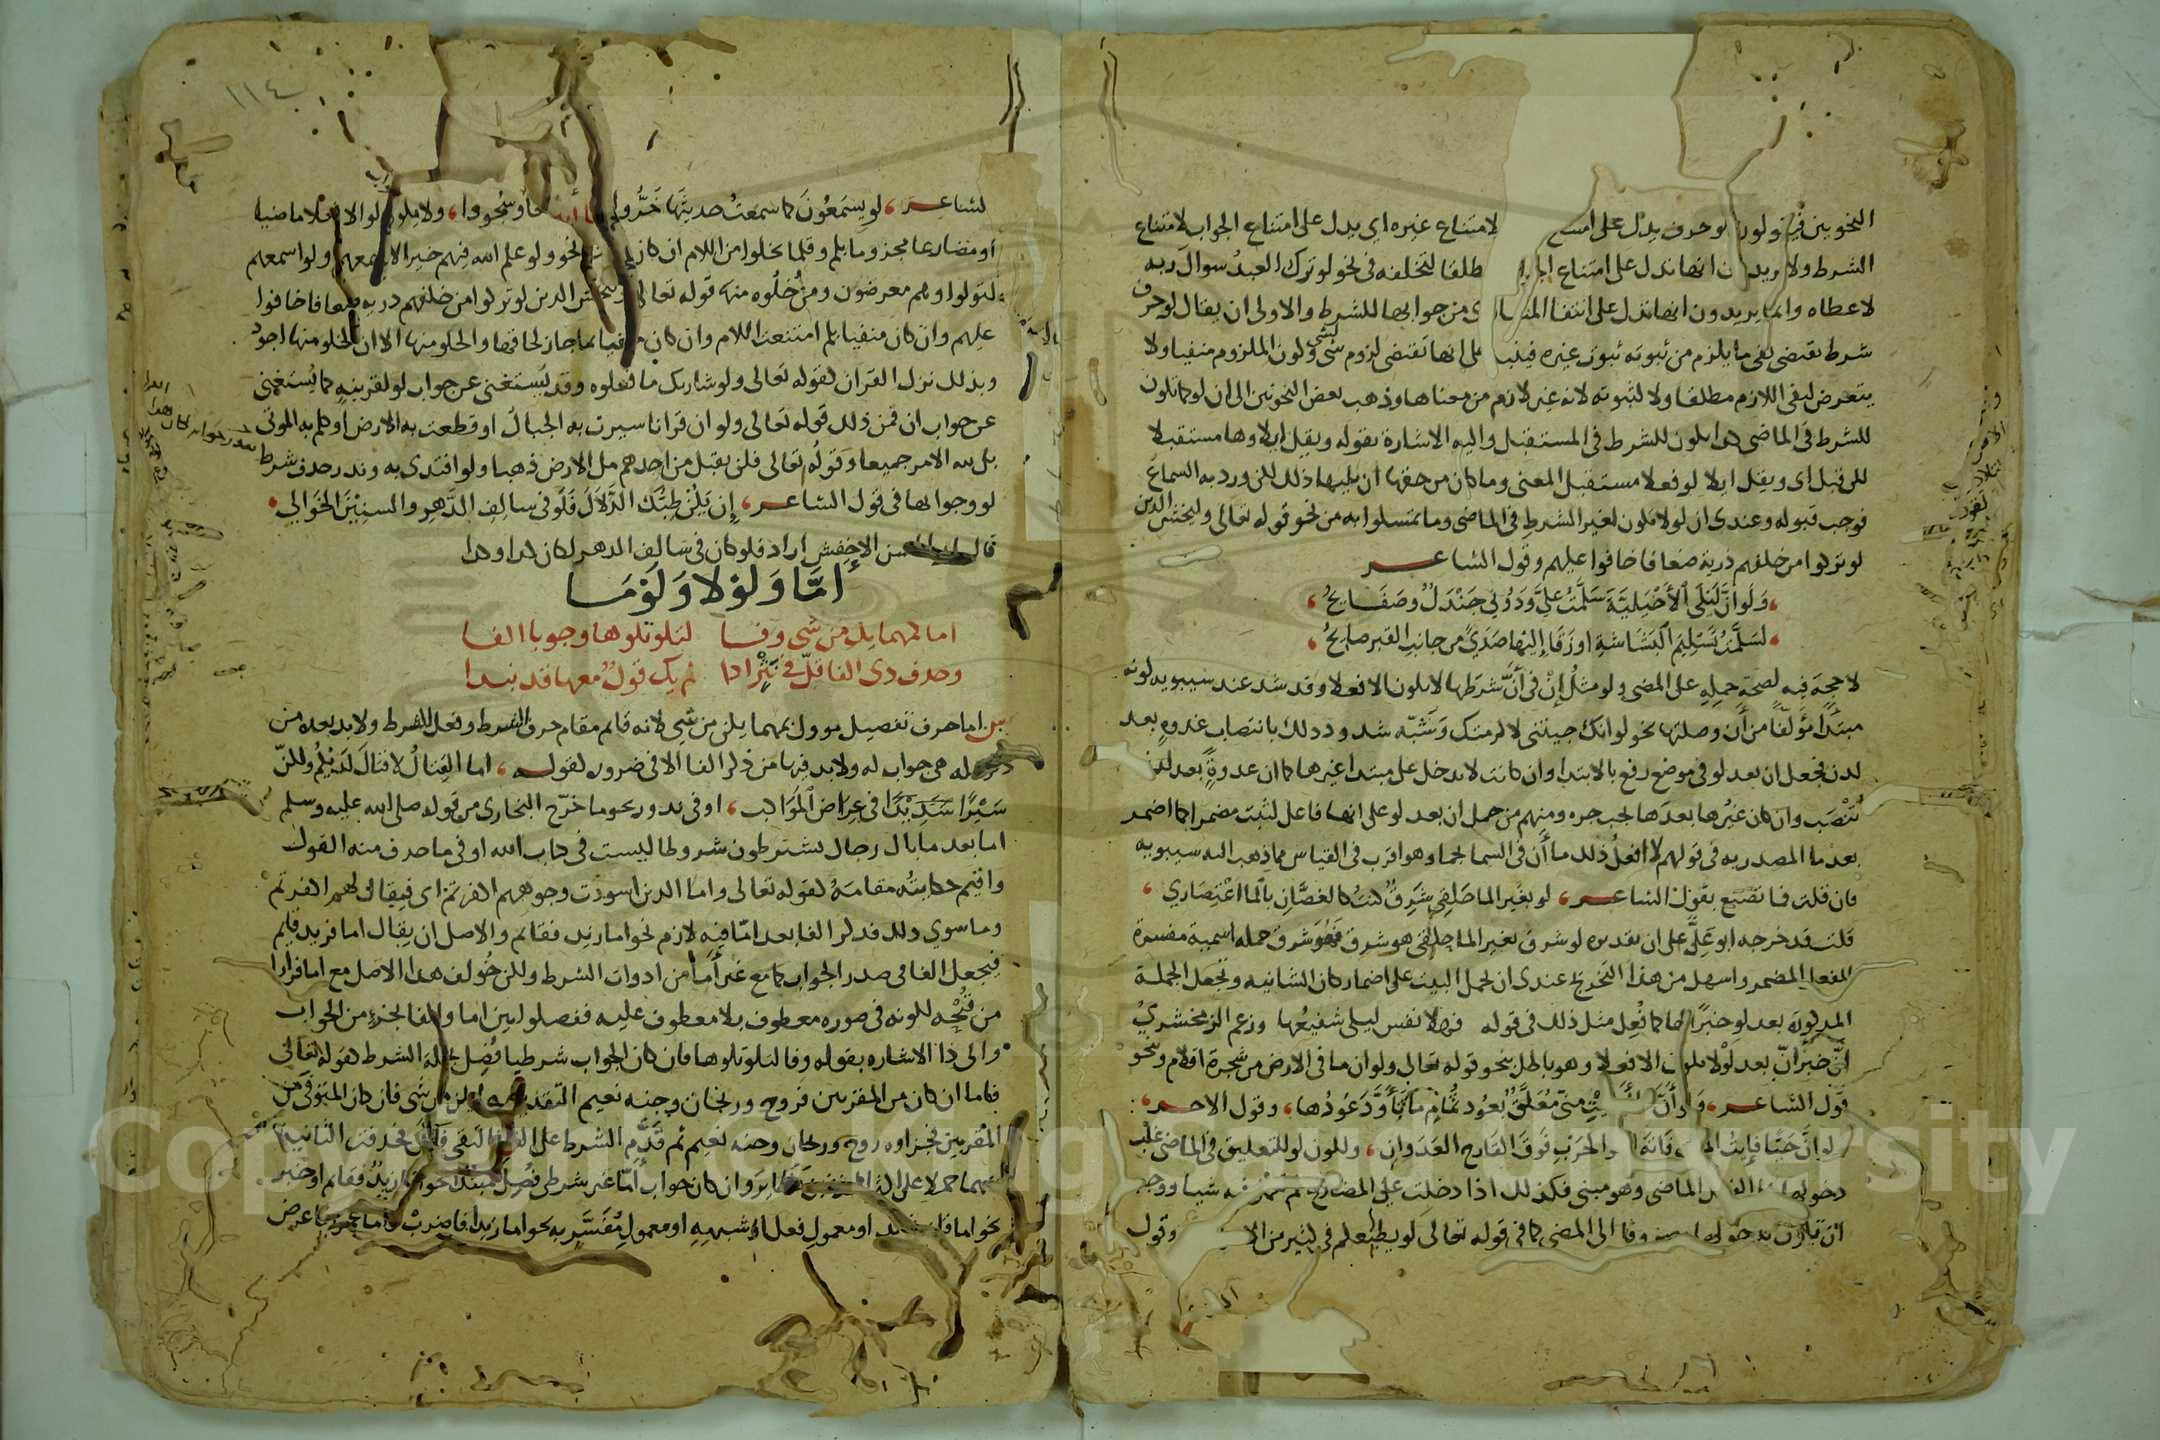 النحويين فيقولون لو حرف يدل على امتناع لامتناع غيره اي يدل على امتناع الجواب لامتناع
الشرط ولا يريدون انها تدل على امتناع الجواب مطلقا لتخلفه في نحو لو ترك العبد سوال ربه
لاعطاه وانما يريدون انها تدل على انتفا المساوي من جوابها للشرط والاولى ان يقال لو حرف
شرط يقتضي نفي ما يلزم من ثبوته ثبوت غيره فينبه على انها تقتضي لزوم شي لشي وكون الملزوم منفيا ولا
يتعرض لنفي اللازم مطلقا ولا لثبوته لانه غير لازم من معناها وذهب بعض النحويين الى ان لو كما تكون
للشرط في الماضي كذا تكون للشرط في المستقبل واليه الاشارة بقوله ويقل ايلاوها مستقبلا
لكن قبل اي ويقل ايلا لو فعلا مستقبل المعنى وما كان من حقها ان يليها ذلك لكن ورد به السماع
فوجب قبوله وعندي ان لو لا تكون لغير الشرط في الماضي وما تمسلوا به من نحو قوله تعالى وليخش الذين
لو تركوا من خلفهم ذرية ضعافا خافوا عليهم وقول الشاعر
ولو ان ليلى الأخيلية سلمت علي ودوني جندل وصفايح
لسلمت تسليم البشاشة او زقا اليها صدي من جانب القبر صايح
لا حجة فيه لصحة حمله على المضي ولو مثل إن في أن شرطها لا يكون الا فعلا وقد شذ عند سيبويه كونه
مبتدا مؤلفا من أن وصلتها نحو لو انك جيتني لاكرمتك وشبه شذوذ ذلك بانتصاب غدوة بعد
لدن فجعل ان بعد لو في موضع رفع بالابتدا وان كانت لا تدخل على مبتدا غيرها كما ان غدوة بعد لدن
تنصب وان كان غيرها بعدها يجب جره ومنهم من حمل ان بعد لو على انها فاعل لثبت مضمرا كما اضمر
بعد ما المصدرية في قولهم لا افعل ذلك ما أن في السما نجما وهو اقرب في القياس مما ذهب اليه سيبويه
فان قلت فما تصنع بقول الشاعر لو بغير الما حلقي شرق كنت كالغصان بالما اعتصاري
قلت قد خرجه ابو علي على ان تقديره لو شرق بغير الما حلقي هو شرق فهو شرق جملة اسمية مفسرة
للفعل المضمر واسهل من هذا التخريج عندي ان يحمل البيت على اضمار كان الشانية وتجعل الجملة
المذكورة بعد لو خبرا لها كما فعل مثل ذلك في قوله فهلا نفس ليلى شفيعها وزعم الزمخشري
أن خبر أن بعد لو لا يكون الا فعلا وهو باطل بنحو قوله تعالى ولو ان ما في الارض من شجرة اقلام ونحو
قول الشاعر ولو أن ما ابقيت مني معلق بعود ثمام ما تأود عودها وقول الاخر
لو ان حيا فايت الموت فاته اخو الحرب فوق القارح العدوان ولكون لو للتعليق في الماضي غلب
دخولها على الفعل الماضي وهو مبني فكذلك اذا دخلت على المضارع لم تعمل فيه شيا ووجب
ان يكون بدخولها مصروفا الى المضي كما في قوله تعالى لو يطيعكم في كثير من الامر وقول
١١٤
الشاعر لو يسمعون كما سمعت حديثها خروا لعزة ركعا وسجودا ولا يكون جواب لو الا فعلا ماضيا
أو مضارعا مجزوما بلم وقلما يخلوا من اللام ان كان مثبتا نحو ولو علم الله فيهم خيرا لاسمعهم ولو اسمعهم
لتولوا وهم معرضون ومن خلوه منها قوله تعالى وليخش الذين لو تركوا من خلفهم ذرية ضعافا خافوا
عليهم وان كان منفيا بلم امتنعت اللام وان كان منفيا بما جاز لحاقها والخلو منها الا ان الخلو منها اجود
وبذلك نزل القران كقوله تعالى ولو شا ربك ما فعلوه وقد يستغنى عن جواب لو لقرينة كما يستغنى
عن جواب ان فمن ذلك قوله تعالى ولو ان قرانا سيرت به الجبال او قطعت به الارض او كلم به الموتى
بل لله الامر جميعا وقوله تعالى فلن يقبل من احدهم مل الارض ذهبا ولو افتدى به وندر حذف شرط
لو وجوابها في قول الشاعر إن يكن طبك الدلال فلو في سالف الدهر والسنين الخوالي
قال ابو الحسن الاخفش اراد فلو كان في سالف الدهر لكان كذا وكذا
امَّا وَلَوْلا وَلَوْمَا
اما كمهما يك من شي وفا لتلو تلوها وجوبا الفا
وحذف ذي الفا قل في نثر اذا لم يك قول معها قد نبذا
ش اما حرف تفصيل موول بمهما يكن من شي لانه قايم مقام حرف الشرط وفعل الشرط ولا بد بعده من
ذكر جملة هي جواب له ولا بد فيها من ذكر الفا الا في ضرورة كقوله اما القتال لا قتال لديكم ولكن
سيرا في عراض المواكب او في ندور نحو ما خرج البخاري من قوله صلى الله عليه وسلم
اما بعد ما بال رجال يشترطون شروطا ليست في كتاب الله او في ما حذف منه القول
واقيم حكايته مقامه كقوله تعالى واما الذين اسودت وجوههم اكفرتم اي فيقال لهم اكفرتم
وما سوي ذلك فذكر الفا بعد امّا فيه لازم نحو اما زيد فقايم والاصل ان يقال اما فزيد قايم
فتجعل الفا في صدر الجواب كما مع غير أما من ادوات الشرط ولكن خولف هذا الاصل مع اما فرارا
من قبحه لكونه في صورة معطوف بلا معطوف عليه ففصلوا بين اما والفا بجزء من الجواب
والى ذا الاشارة بقوله وفا لتلو تلوها فان كان الجواب شرطيا فصل بجملة الشرط كقوله تعالى
فاما ان كان من المقربين فروح وريحان وجنة نعيم التقدير مهما يكن من شي فان كان المتوفى من
المقربين فجزاوه روح وريحان وجنة نعيم ثم قدم الشرط على الفا فالتقى فاان فحذفت الثانية
منهما حملا على اكثر الحذفين نظاير وان كان جواب أمّا غير شرطي فصل بمبتدا نحو اما زيد فقايم او خبر
نحو اما قايم فزيد او معمول فعل او شبهه او معمول مفسر به نحو اما زيدا فاضرب واما عمرا فاعرض